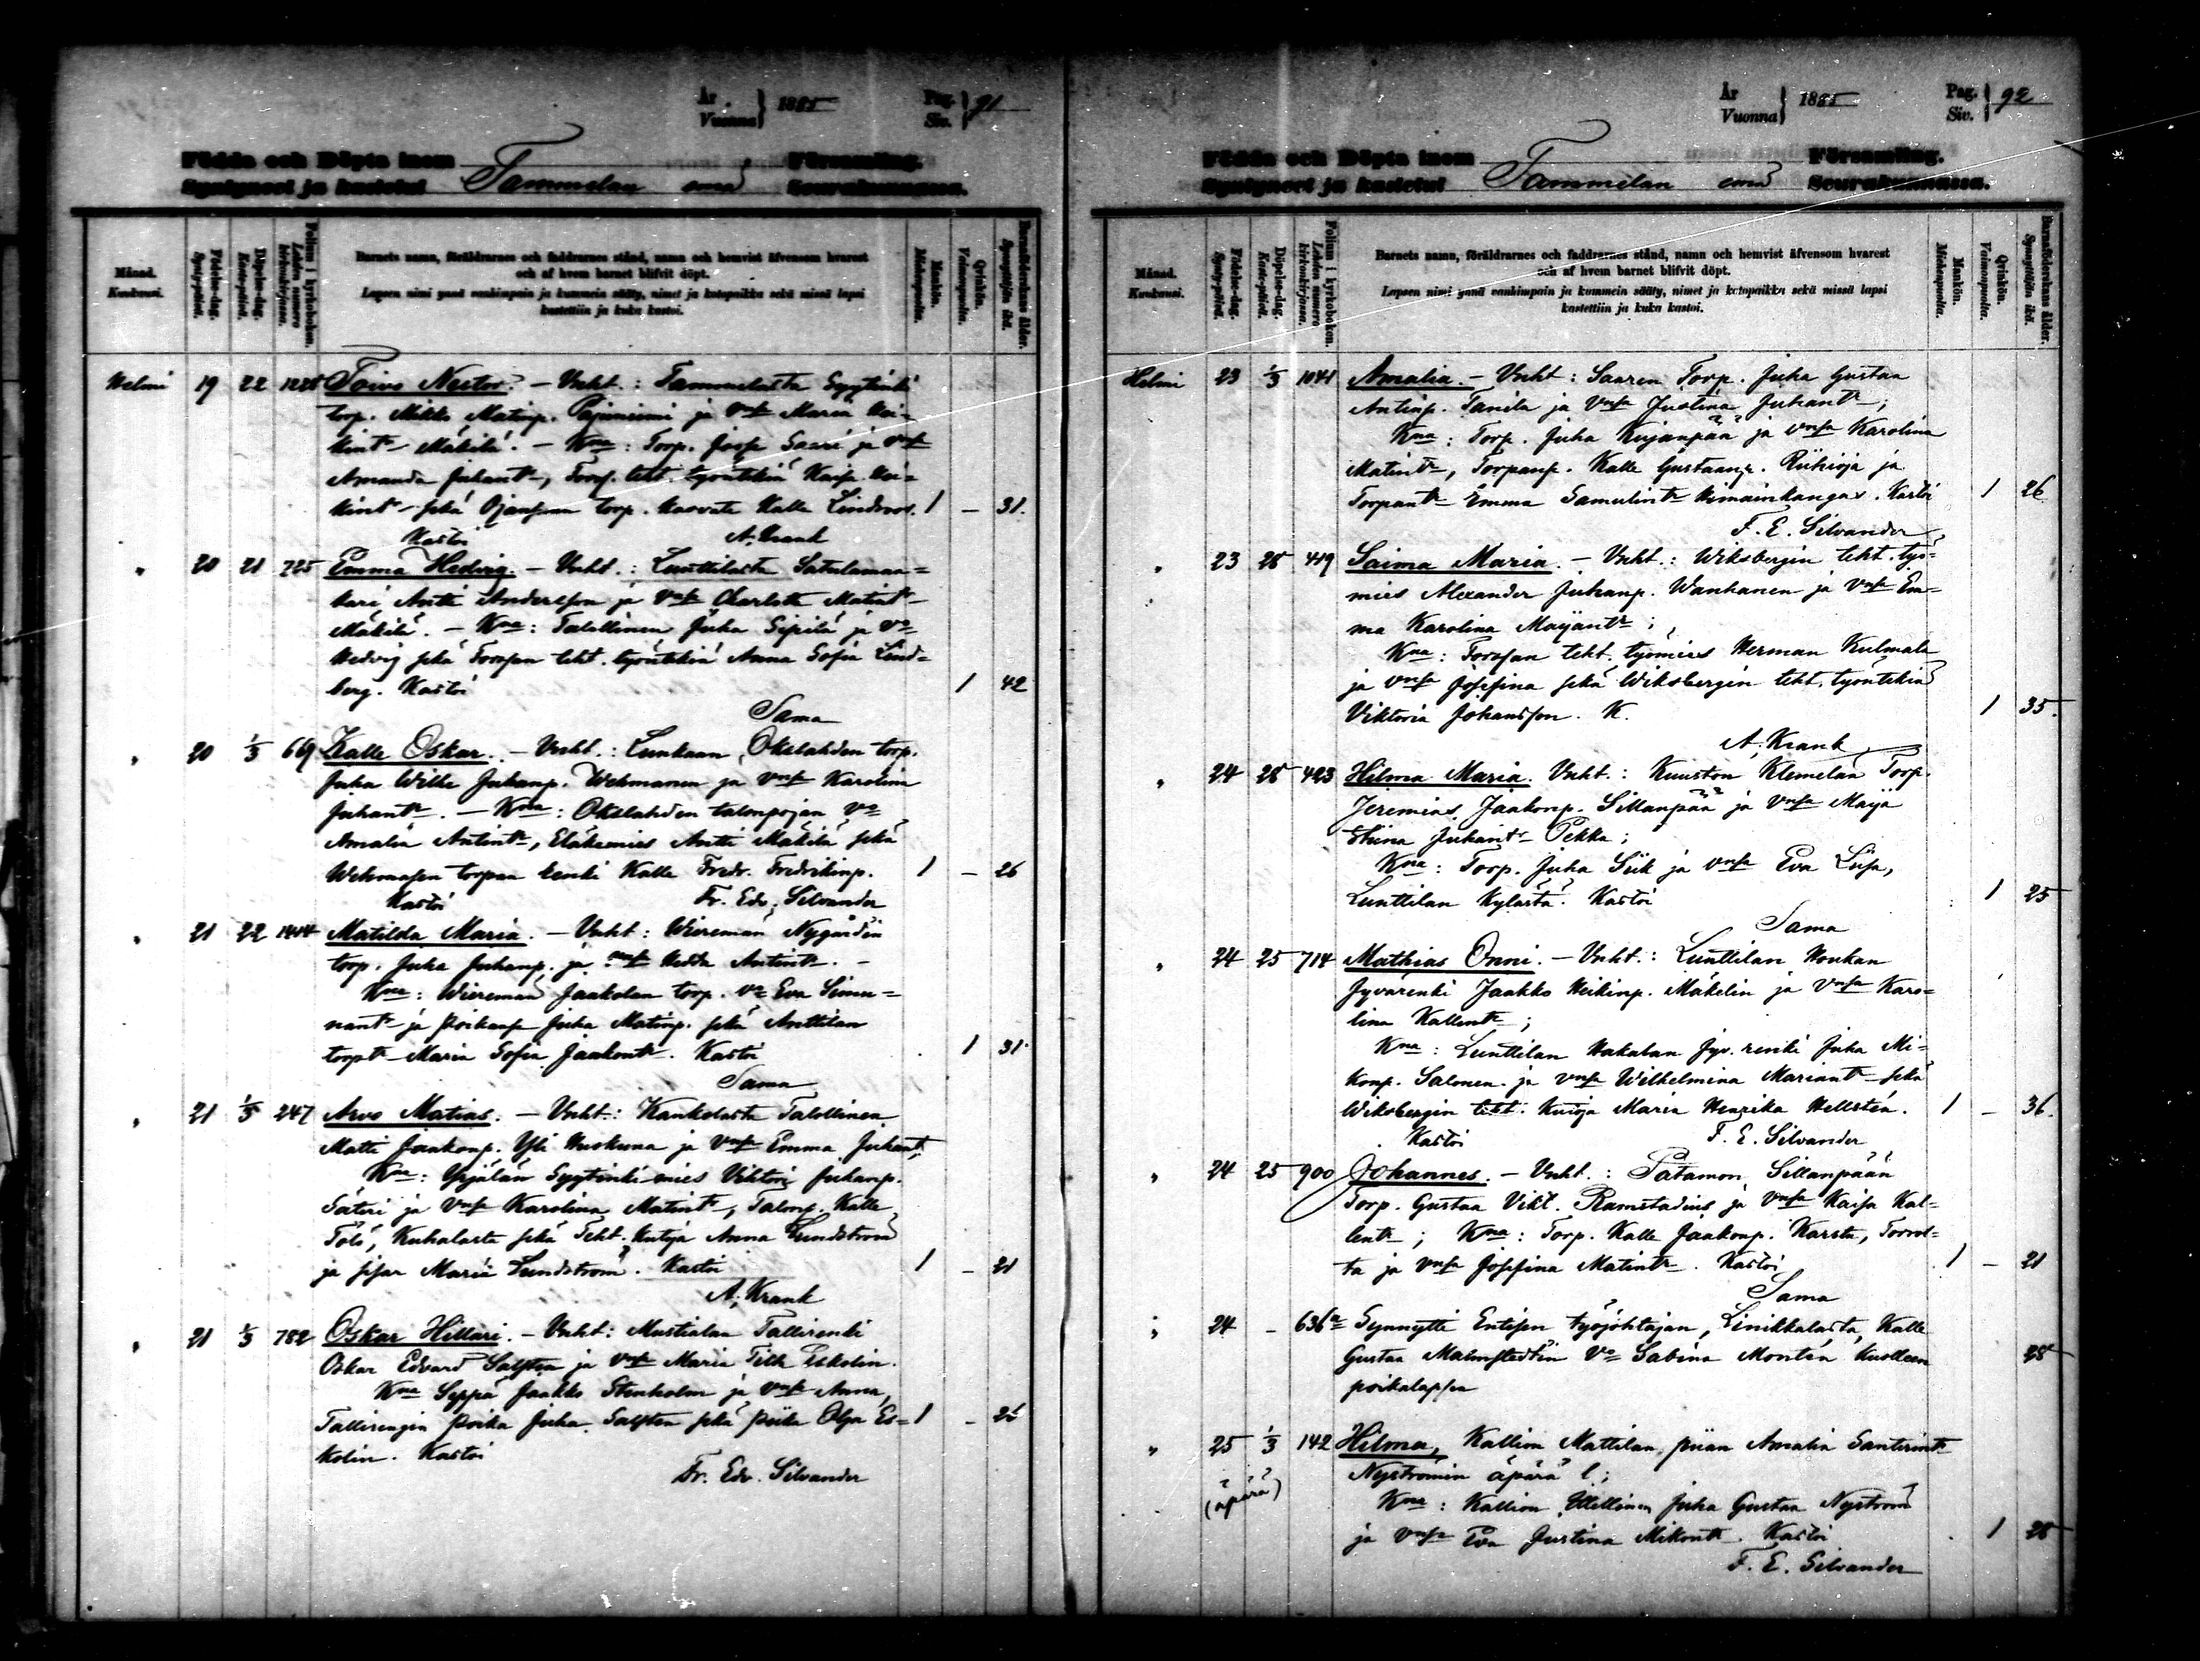 År
Vuonna } 1885 Pag.
Siv. } 91
Födda och Döpta inom Församling.
Syntyneet ja kastetut Tammelan emä Seurakunnassa.
Månad.
Kuukausi.
Födelse-dag.
Synty-päivä.
Döpelse-dag.
Kaste-päivä.
Folium i kyrkoboken.
Lehden numero kirkonkirjassa.
Barnets namn, föräldrarnes och faddrarnes stånd, namn och hemvist äfvensom hvarest
och af hvem barnet blifvit döpt.
Lapsen nimi ynnä vanhimpain ja kummein sääty, nimet ja kotopaikka sekä missä lapsi
kastettiin ja kuka kastoi.
Mankön.
Miehenpuolta.
Qvinkön.
Vaimonpuolta.
Barnaföderskans ålder.
Synnyttäjän ikä.
Helmi 19 22 Toivo Nestor. – Vnht.: Tammelasta Syytinki
torp. Mikko Matinp. Pajuniemi ja vmsa Maria Hei-
kint. Mäkilä. – Kma: Torp. Josep Saari ja vmsa
Amanda Juhant., Forss. teht. työntekiä Kaisa Hei-
kint. sekä Ojansuun torp. kasvate Kalle Lindroos. 1 – 31.
Kastoi A. Krank
" 20 21 725 Emma Hedvig. – Vnht.: Lunttilasta Satulamaa-
kari Antti Andersson ja vmsa Charlotta Matint.
Mäkilä. – Kma: Talollinen Juha Sipilä ja vo
Hedvig sekä Forssan teht. työntekiä Anna Sofia Lind-
berg. Kastoi 1 42
Sama
" 20 1/3 669 Kalle Oskar. – Vnht.: Lunkaan Okslahden torp.
Juha Wilho Juhanp. Wehmanen ja vmsa Karolina
Juhant. – Kma: Okslahden talonpojan vo
Amalia Antint., Eläkemies Antti Mäkilä sekä
Wehmaisen torpan renki Kalle Fredr. Fredrikinp. 1 – 26
Kastoi Fr. Edv. Silvander
" 21 22 1414 Matilda Maria. – Vnht: Wieremän Nygårdin
torp. Juha Juhanp. ja vmsa Hedda Antint. –
Kma: Wieremän Jaakolan torp. vo Eva Simu-
nant. ja poikansa Juha Matinp. sekä Anttilan
torpt. Maria Sofia Jaakont. Kastoi 1 31
Sama
" 21 1/3 247 Arvo Matias. – Vnht: Kankolasta Talollinen
Matti Jaakonp. Yli Huskuna ja vmsa Emma Juhant.
Kma: Yrjälän Syytinki mies Viktor Juhanp.
Säteri ja vmsa Karolina Matint., Talonp. Kalle
Tölö, Kuhalasta sekä Teht. kutoja Anna Lundström
ja sisar Maria Lundström. Kastoi 1 – 21
A. Krank
" 21 1/3 782 Oskar Hillari. – Vnht: Mustialan Tallirenki
Oskar Edvard Salsten ja vmsa Maria Tilk Eskolin.
Kma Seppä Jaakko Stenholm ja vmsa Anna,
Tallirengin poika Juha Salsten sekä piika Olga Es- 1 –
kolin. Kastoi
Fr. Edv. Silvander
År
Vuonna } 1885 Pag.
Siv. } 92
Födda och Döpta inom Församling.
Syntyneet ja kastetut Tammelan emä Seurakunnassa.
Månad.
Kuukausi.
Födelse-dag.
Synty-päivä.
Döpelse-dag.
Kaste-päivä.
Folium i kyrkoboken.
Lehden numero kirkonkirjassa.
Barnets namn, föräldrarnes och faddrarnes stånd, namn och hemvist äfvensom hvarest
och af hvem barnet blifvit döpt.
Lapsen nimi ynnä vanhimpain ja kummein sääty, nimet ja kotopaikka sekä missä lapsi
kastettiin ja kuka kastoi.
Mankön.
Miehenpuolta.
Qvinkön.
Vaimonpuolta.
Barnaföderskans ålder.
Synnyttäjän ikä.
Helmi 23 1/3 1041 Amalia. – Vnht: Saaren Torp. Juha Gustaa
Antinp. Tanila ja vmsa Justina Juhant.;
Kma: Torp. Juha Kujanpää ja vmsa Karolina
Matint., Torpanp. Kalle Gustaanp. Riihioja ja
Torpant. Emma Samulint. Kastoi 1 26
F. E. Silvander
" 23 28 419 Saima Maria. – Vnht.: Wiksbergin teht. työ-
mies Alexander Juhanp. Wanhanen ja vmsa Em-
ma Karolina Maijant.;
Kma: Forssan teht. työmies Herman Kulmala
ja vmsa Josefina sekä Wiksbergin teht. työntekiä
Viktoria Johansson. K. 1 35.
A. Krank
" 24 28 423 Hilma Maria. Vnht.: Kuuston Klemelän Torp.
Jeremias Jaakonp. Sillanpää ja vmsa Maija
Stiina Juhant. Pekka;
Kma: Torp. Juha Siik ja vmsa Eva Liisa,
Lunttilan kylästä. Kastoi 1 25
Sama
" 24 25 714 Mathias Onni. – Vnht.: Lunttilan Houkan
Jyvärenki Jaakko Heikinp. Mäkelin ja vmsa Karo-
lina Kallent.;
Kma: Lunttilan Hakalan Jyv. renki Juha Mi-
konp. Salonen ja vmsa Wilhelmina Mariant. sekä
Wiksbergin teht. kutoja Maria Henrika Hellstén. 1 – 36.
Kastoi F. E. Silvander
" 24 25 900 Johannes. – Vnht.: Patamon Sillanpään
Torp. Gustaa Vikt. Ramstadius ja vmsa Kaisa Kal-
lent.; Kma: Torp. Kalle Jaakonp. Karsta, Torrol-
ta ja vmsa Josefina Matint. Kastoi 1 – 21
Sama
" 24 – 636a Synnytti Entisen työjohtajan, Linikkalasta, Kalle
Gustaa Malmstedtin vo Sabina Montén kuolleen 28
poikalapsen
" 25 1/3 142 Hilma, Kallion Mattilan piian Amalia Santerint.
Nyströmin äpärä l;
(äpärä)
Kma: Kallion Itsellinen Juha Gustaa Nyström
ja vmsa Eva Justina Mikont. Kastoi 1 28
F. E. Silvander